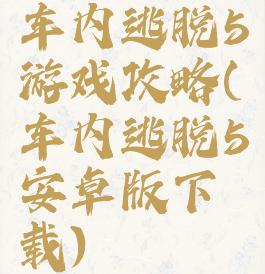 车内逃脱5
游戏攻略(
车内逃脱5
安卓版下
载)